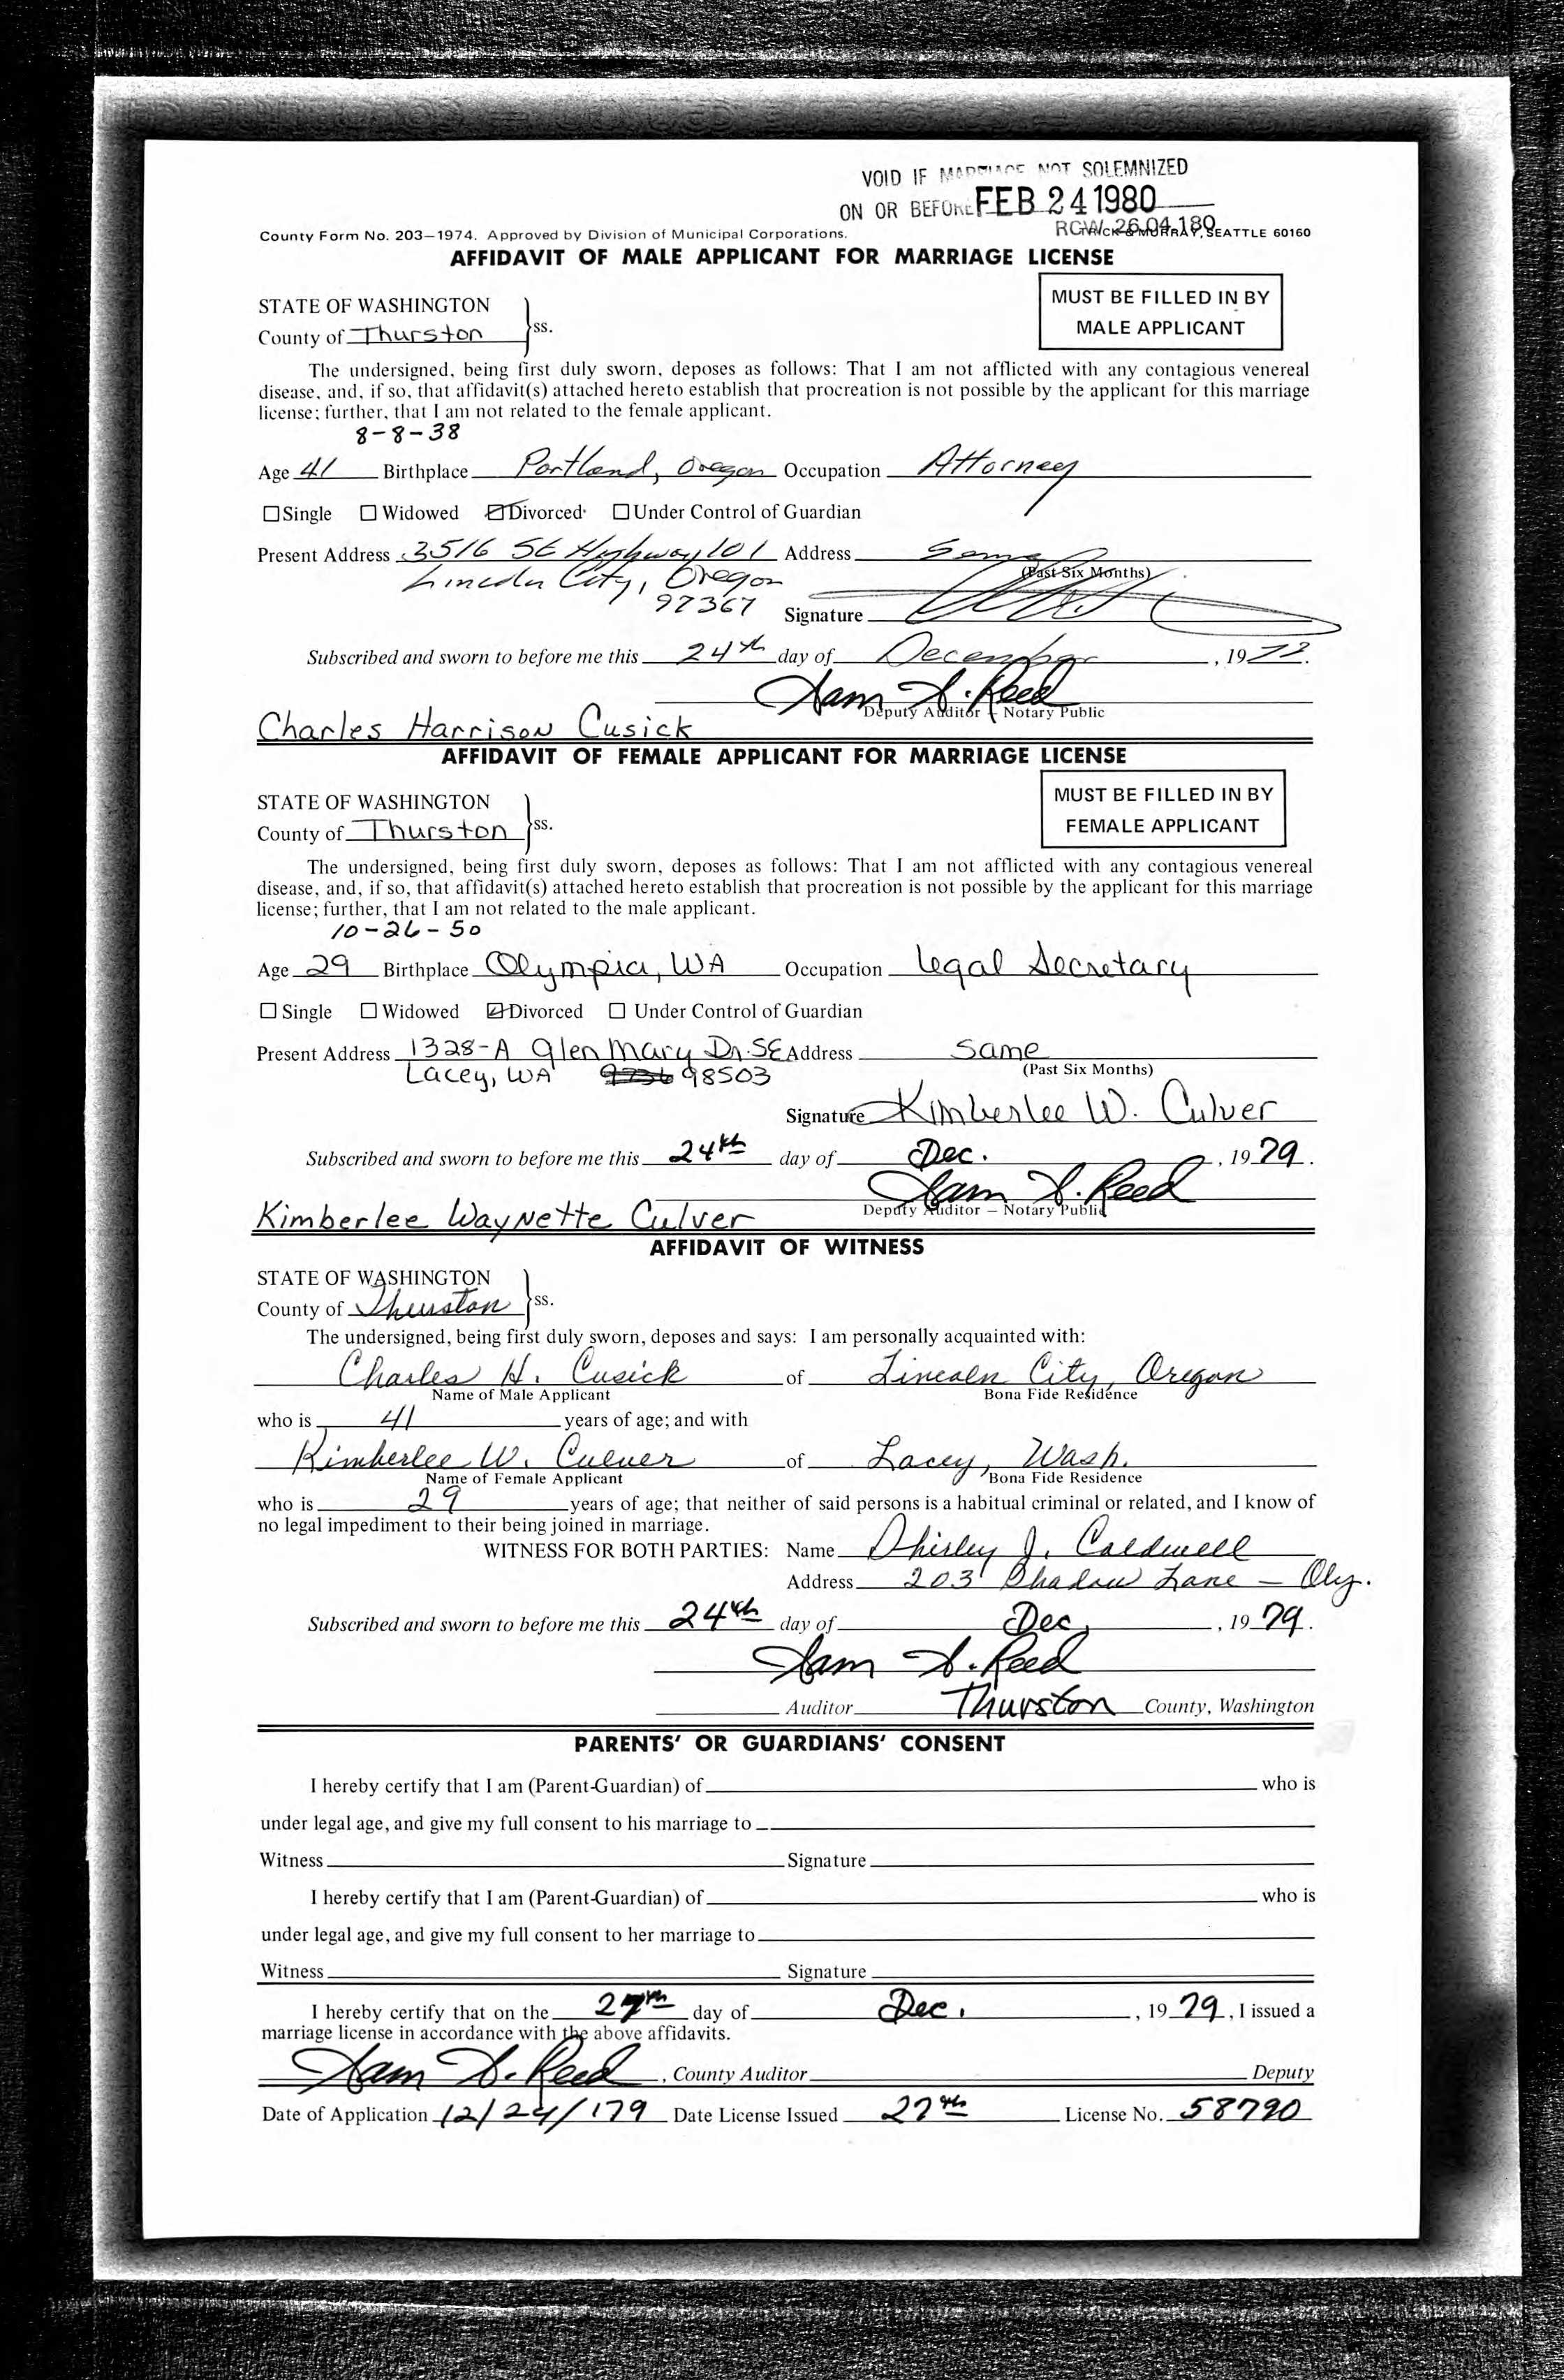 VOID IF MARRIAGE NOT SOLEMNIZED
ON OR BEFORE FEB 24 1980
RCW 26.04.180
County Form No. 203—1974. Approved by Division of Municipal Corporations. TRICK & MURRAY, SEATTLE 60160
AFFIDAVIT OF MALE APPLICANT FOR MARRIAGE LICENSE
STATE OF WASHINGTON
County of Thurston } ss.
MUST BE FILLED IN BY
MALE APPLICANT
The undersigned, being first duly sworn, deposes as follows: That I am not afflicted with any contagious venereal
disease, and, if so, that affidavit(s) attached hereto establish that procreation is not possible by the applicant for this marriage
license; further, that I am not related to the female applicant.
8-8-38
Age 41 Birthplace Portland, Oregon Occupation Attorney
☐ Single ☐ Widowed ☑ Divorced ☐ Under Control of Guardian
Present Address 3516 SE Highway 101 Address Same
(Past Six Months)
Lincoln City, Oregon
97367
Signature
Subscribed and sworn to before me this 24th day of December, 19
Sam S. Reed
Deputy Auditor – Notary Public
Charles Harrison Cusick
AFFIDAVIT OF FEMALE APPLICANT FOR MARRIAGE LICENSE
STATE OF WASHINGTON
County of Thurston } ss.
MUST BE FILLED IN BY
FEMALE APPLICANT
The undersigned, being first duly sworn, deposes as follows: That I am not afflicted with any contagious venereal
disease, and, if so, that affidavit(s) attached hereto establish that procreation is not possible by the applicant for this marriage
license; further, that I am not related to the male applicant.
10-26-50
Age 29 Birthplace Olympia, WA Occupation Legal Secretary
☐ Single ☐ Widowed ☑ Divorced ☐ Under Control of Guardian
Present Address 1328-A Glen Mary Dr. SE Address same
(Past Six Months)
Lacey, WA 98503
Signature Kimberlee W. Culver
Subscribed and sworn to before me this 24th day of Dec., 1979.
Sam S. Reed
Deputy Auditor – Notary Public
Kimberlee Waynette Culver
AFFIDAVIT OF WITNESS
STATE OF WASHINGTON
County of Thurston } ss.
The undersigned, being first duly sworn, deposes and says: I am personally acquainted with:
Charles H. Cusick of Lincoln City, Oregon
Name of Male Applicant Bona Fide Residence
who is 41 years of age; and with
Kimberlee W. Culver of Lacey, Wash.
Name of Female Applicant Bona Fide Residence
who is 29 years of age; that neither of said persons is a habitual criminal or related, and I know of
no legal impediment to their being joined in marriage.
WITNESS FOR BOTH PARTIES: Name Shirley J. Caldwell
Address 203 Shadow Lane – Oly.
Subscribed and sworn to before me this 24th day of Dec, 1979.
Sam S. Reed
Auditor Thurston County, Washington
PARENTS' OR GUARDIANS' CONSENT
I hereby certify that I am (Parent-Guardian) of who is
under legal age, and give my full consent to his marriage to
Witness Signature
I hereby certify that I am (Parent-Guardian) of who is
under legal age, and give my full consent to her marriage to
Witness Signature
I hereby certify that on the 27th day of Dec., 1979, I issued a
marriage license in accordance with the above affidavits.
Sam S. Reed, County Auditor Deputy
Date of Application 12/24/179 Date License Issued 27th License No. 58790